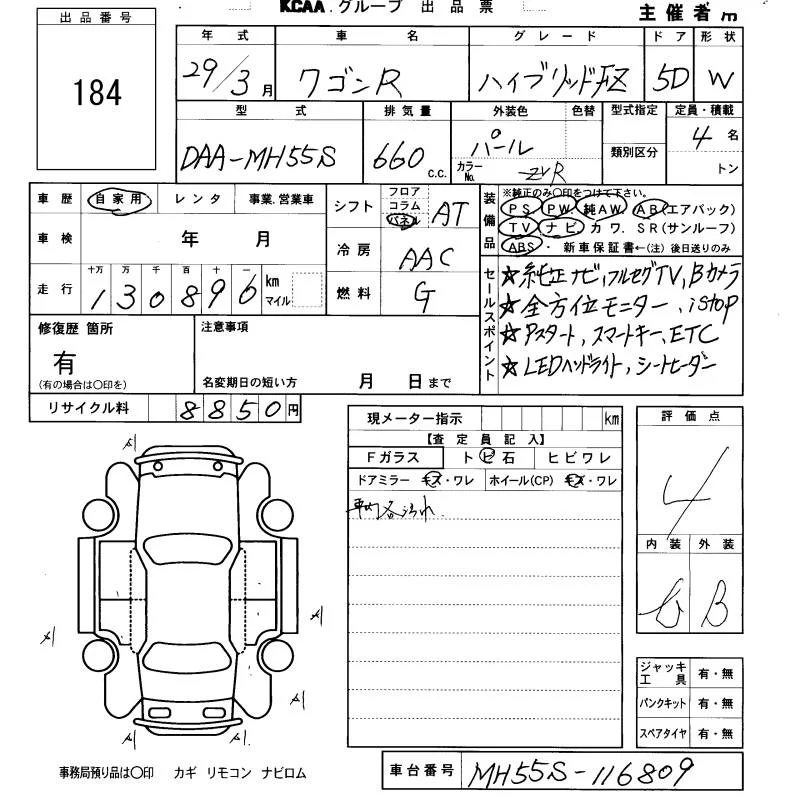 KCAA.グループ 出品票
主催者用
出品番号
184
年式 車名 グレード ドア 形状
29/3月 ワゴンR ハイブリッドFZ 5D W
型式 排気量 外装色 色替 型式指定 定員・積載
DAA-MH55S 660 c.c. パール 4名
カラーNo. ZVR 類別区分 トン
車歴 自家用 レンタ 事業.営業車
シフト フロア コラム パネル AT
装備品 ※純正のみ〇印をつけて下さい。
PS PW. 純AW. AB(エアバック)
TV ナビ. カワ. SR(サンルーフ)
ABS ・ 新車保証書←(注) 後日送りのみ
車検 年 月
冷房 AAC
走行 十万 万 千 百 十 一
130896 km マイル
燃料 G
セールスポイント
★純正ナビ,フルセグTV,Bカメラ
★全方位モニター、iStop
★Pスタート,スマートキー,ETC
★LEDヘッドライト,シートヒーター
修復歴 箇所
有
(有の場合は〇印を)
注意事項
名変期日の短い方 月 日まで
リサイクル料 8850円
現メーター指示 km
【査定員記入】
Fガラス トビ石 ヒビワレ
ドアミラー キズ・ワレ ホイール(CP) キズ・ワレ
車内各汚れ.
評価点
4
内装 外装
B
A1
A1
A1
A1
A1
A1
ジャッキ 工具 有・無
パンクキット 有・無
スペアタイヤ 有・無
事務局預り品は〇印 カギ リモコン ナビロム
車台番号 MH55S-116809